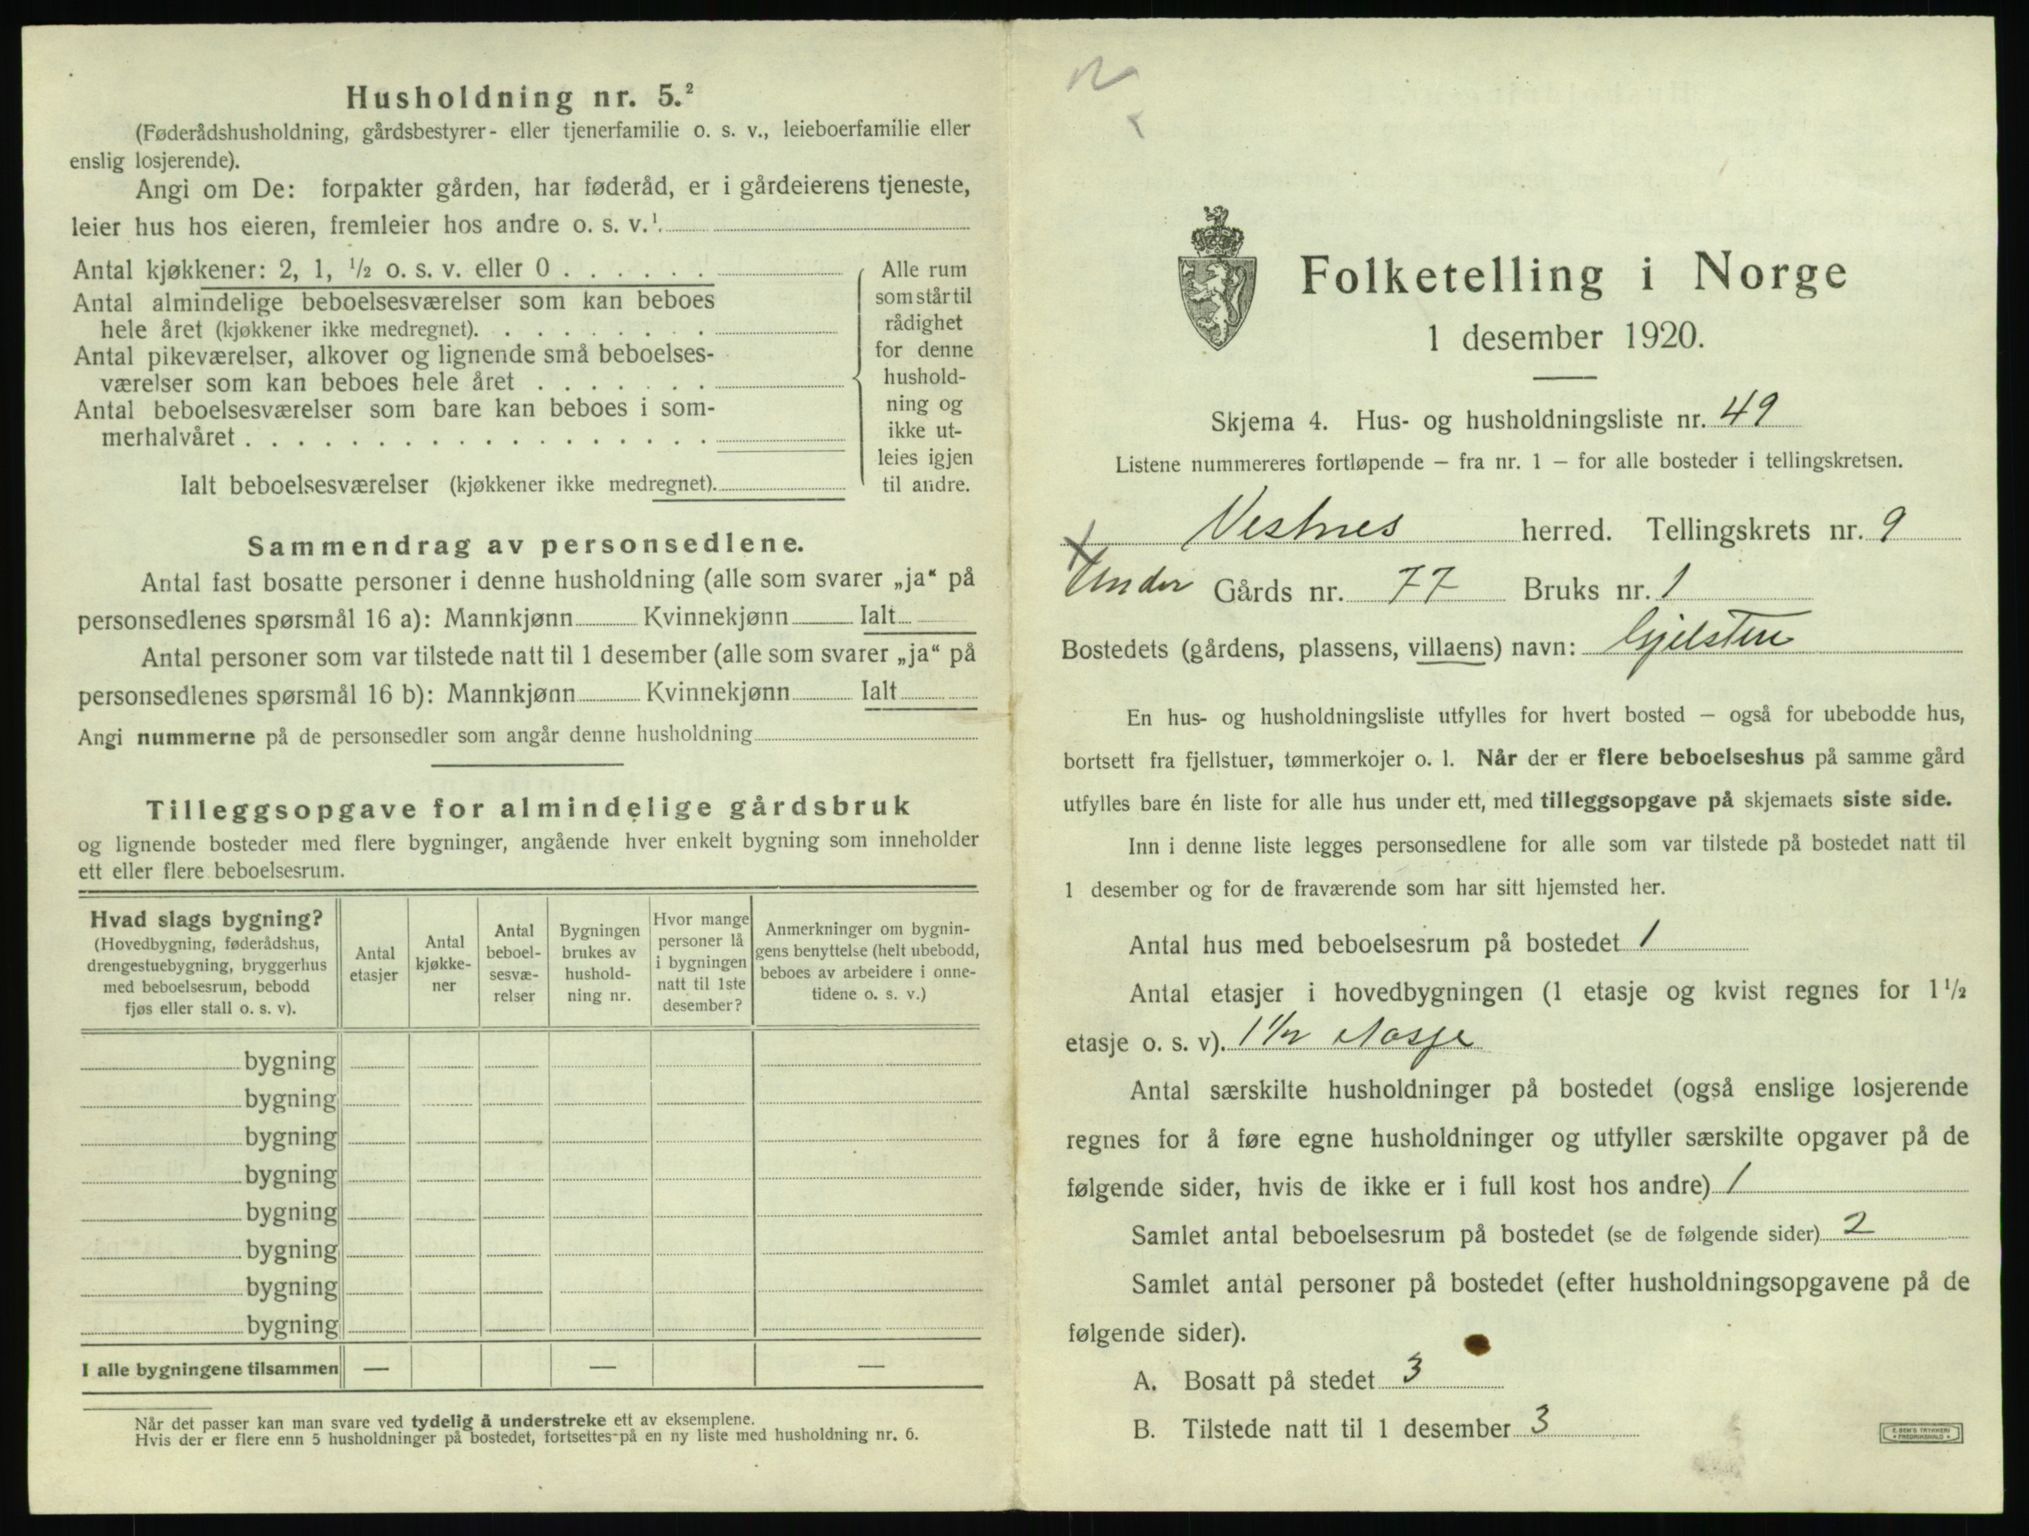 Husholdning nr. 5.²
(Føderådshusholdning, gårdsbestyrer- eller tjenerfamilie o. s. v., leieboerfamilie eller
enslig losjerende).
Angi om De: forpakter gården, har føderåd, er i gårdeierens tjeneste,
leier hus hos eieren, fremleier hos andre o. s. v.¹
Antal kjøkkener: 2, 1, ½ o. s. v. eller 0 . . . . . .
Antal almindelige beboelsesværelser som kan beboes
hele året (kjøkkener ikke medregnet). . . . . . . . .
Antal pikeværelser, alkover og lignende små beboelses-
værelser som kan beboes hele året . . . . . . .
Antal beboelsesværelser som bare kan beboes i som-
merhalvåret . . . . . . . . . . . . . . . . . .
Ialt beboelsesværelser (kjøkkener ikke medregnet).
Alle rum
som står til
rådighet
for denne
hushold-
ning og
ikke ut-
leies igjen
til andre.
Sammendrag av personsedlene.
Antal fast bosatte personer i denne husholdning (alle som svarer „ja“ på
personsedlenes spørsmål 16 a): Mannkjønn Kvinnekjønn Ialt
Antal personer som var tilstede natt til 1 desember (alle som svarer „ja“ på
personsedlenes spørsmål 16 b): Mannkjønn Kvinnekjønn Ialt
Angi nummerne på de personsedler som angår denne husholdning
Tilleggsopgave for almindelige gårdsbruk
og lignende bosteder med flere bygninger, angående hver enkelt bygning som inneholder
ett eller flere beboelsesrum.
Hvad slags bygning?
(Hovedbygning, føderådshus,
drengestuebygning, bryggerhus
med beboelsesrum, bebodd
fjøs eller stall o. s. v).
Antal
etasjer
Antal
kjøkke-
ner
Antal
beboel-
sesvæ-
relser
Bygningen
brukes av
hushold-
ning nr.
Hvor mange
personer lå
i bygningen
natt til 1ste
desember?
Anmerkninger om bygnin-
gens benyttelse (helt ubebodd,
beboes av arbeidere i onne-
tidene o. s. v.)
bygning
bygning
bygning
bygning
bygning
bygning
bygning
bygning
I alle bygningene tilsammen — — —
Når det passer kan man svare ved tydelig å understreke ett av eksemplene.
Hvis der er flere enn 5 husholdninger på bostedet, fortsettes på en ny liste med husholdning nr. 6.
Folketelling i Norge
1 desember 1920.
Skjema 4. Hus- og husholdningsliste nr. 49
Listene nummereres fortløpende – fra nr. 1 – for alle bosteder i tellingskretsen.
Vestnes herred. Tellingskrets nr. 9
Under Gårds nr. 77 Bruks nr. 1
Bostedets (gårdens, plassens, villaens) navn: Gjelsten
En hus- og husholdningsliste utfylles for hvert bosted – også for ubebodde hus,
bortsett fra fjellstuer, tømmerkojer o. l. Når der er flere beboelseshus på samme gård
utfylles bare én liste for alle hus under ett, med tilleggsopgave på skjemaets siste side.
Inn i denne liste legges personsedlene for alle som var tilstede på bostedet natt til
1 desember og for de fraværende som har sitt hjemsted her.
Antal hus med beboelsesrum på bostedet 1
Antal etasjer i hovedbygningen (1 etasje og kvist regnes for 1½
etasje o. s. v). 1½ etasje
Antal særskilte husholdninger på bostedet (også enslige losjerende
regnes for å føre egne husholdninger og utfyller særskilte opgaver på de
følgende sider, hvis de ikke er i full kost hos andre) 1
Samlet antal beboelsesrum på bostedet (se de følgende sider) 2
Samlet antal personer på bostedet (efter husholdningsopgavene på de
følgende sider).
A. Bosatt på stedet 3
B. Tilstede natt til 1 desember 3
E. SEM'S TRYKKERI
FREDRIKSHALD